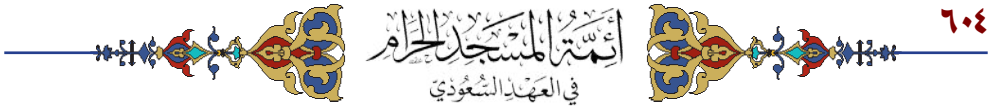 ٦٠٤
أَئِمَّةُ الْمَسْجِدِ الْحَرَامِ
فِي الْعَهْدِ السُّعُودِيّ